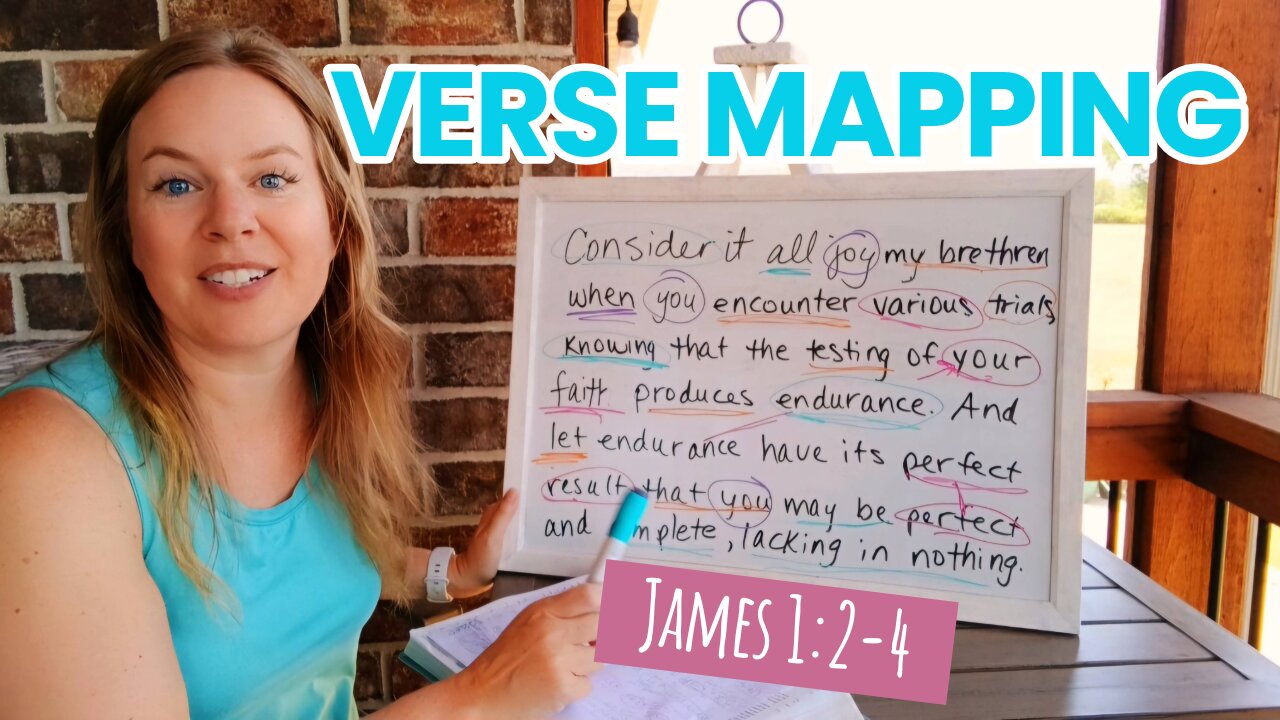 VERSE MAPPING
Consider it all joy my brethren
when you encounter various trials,
knowing that the testing of your
faith produces endurance. And
let endurance have its perfect
result that you may be perfect
and mplete, lacking in nothing.
JAMES 1:2-4